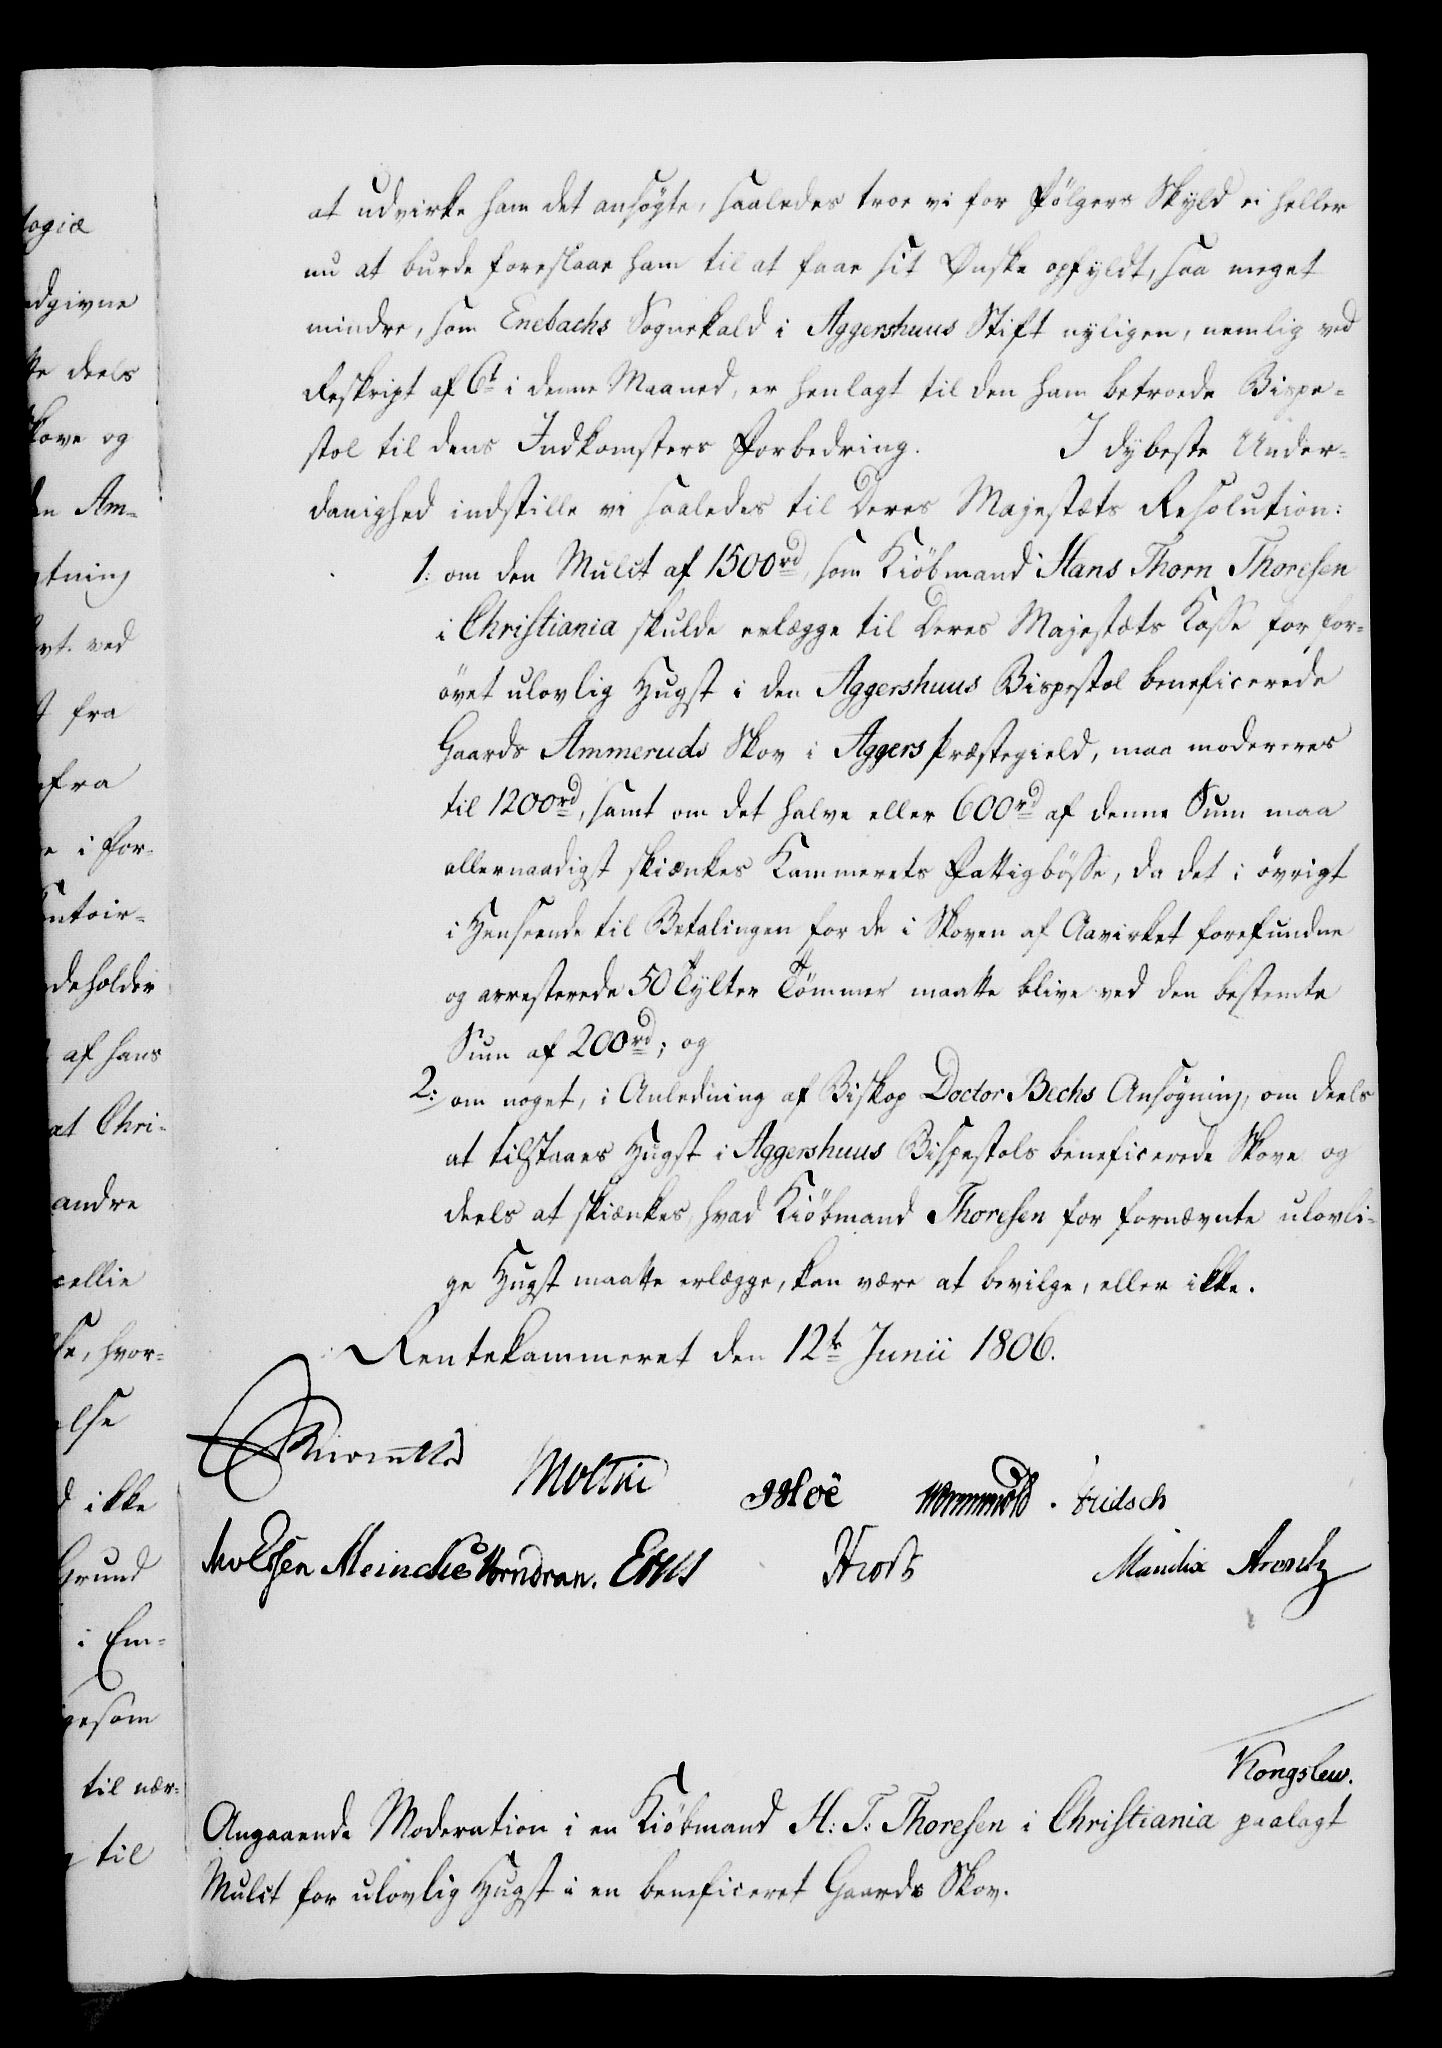 at udvirke ham det ansøgte, saaledes troe vi for Følgers Skyld ei heller
nu at burde foreslaae ham til at faae sit Ønske opfyldt, saa meget
mindre, som Enebachs Sognekald i Aggershuus Stift nyligen, nemlig ved
Reskript af 6t i denne Maaned, er henlagt til den ham betroede Bispe-
stol til dens Indkomsters Forbedring. I dybeste Under-
danighed indstille vi saaledes til Deres Majestæts Resolution:
1: om den Mulct af 1500rd, som Kiøbmand Hans Thorn Thoresen
i Christiania skulde erlægge til Deres Majestæts Kasse for for-
øvet ulovlig Hugst i den Aggershuus Bispestol beneficerede
Gaards Ammeruds Skov i Aggers Præstegield, maa modereres
til 1200rd, samt om det halve eller 600rd af denne Sum maa
allernaadigst skiænkes Kammerets Fattigbøsse, da det i øvrigt
i Henseende til Betalingen for de i Skoven af Aavirket forefundne
og arresterede 50 Tylter Tømmer maatte blive ved den bestemte
Sum af 200rd; og
2: om noget, i Anledning af Biskop Doctor Bechs Ansøgning, om deels
at tilstaaes Hugst i Aggershuus Bispestols beneficerede Skove og
deels at skiænkes, hvad Kiøbmand Thoresen for fornævnte ulovli-
ge Hugst maatte erlægge, kan være at bevilge, eller ikke.
Rentekammeret den 12te Junii 1806.
Reventlow Moltke Hoë Wormskiold. Fridsch
Meincke Vorndran. Hiort Mandix Arentz
Kongslew.
Angaaende Moderation i en Kiøbmand H: T: Thoresen i Christiania paalagt
Mulct for ulovlig Hugst i en beneficeret Gaards Skov.